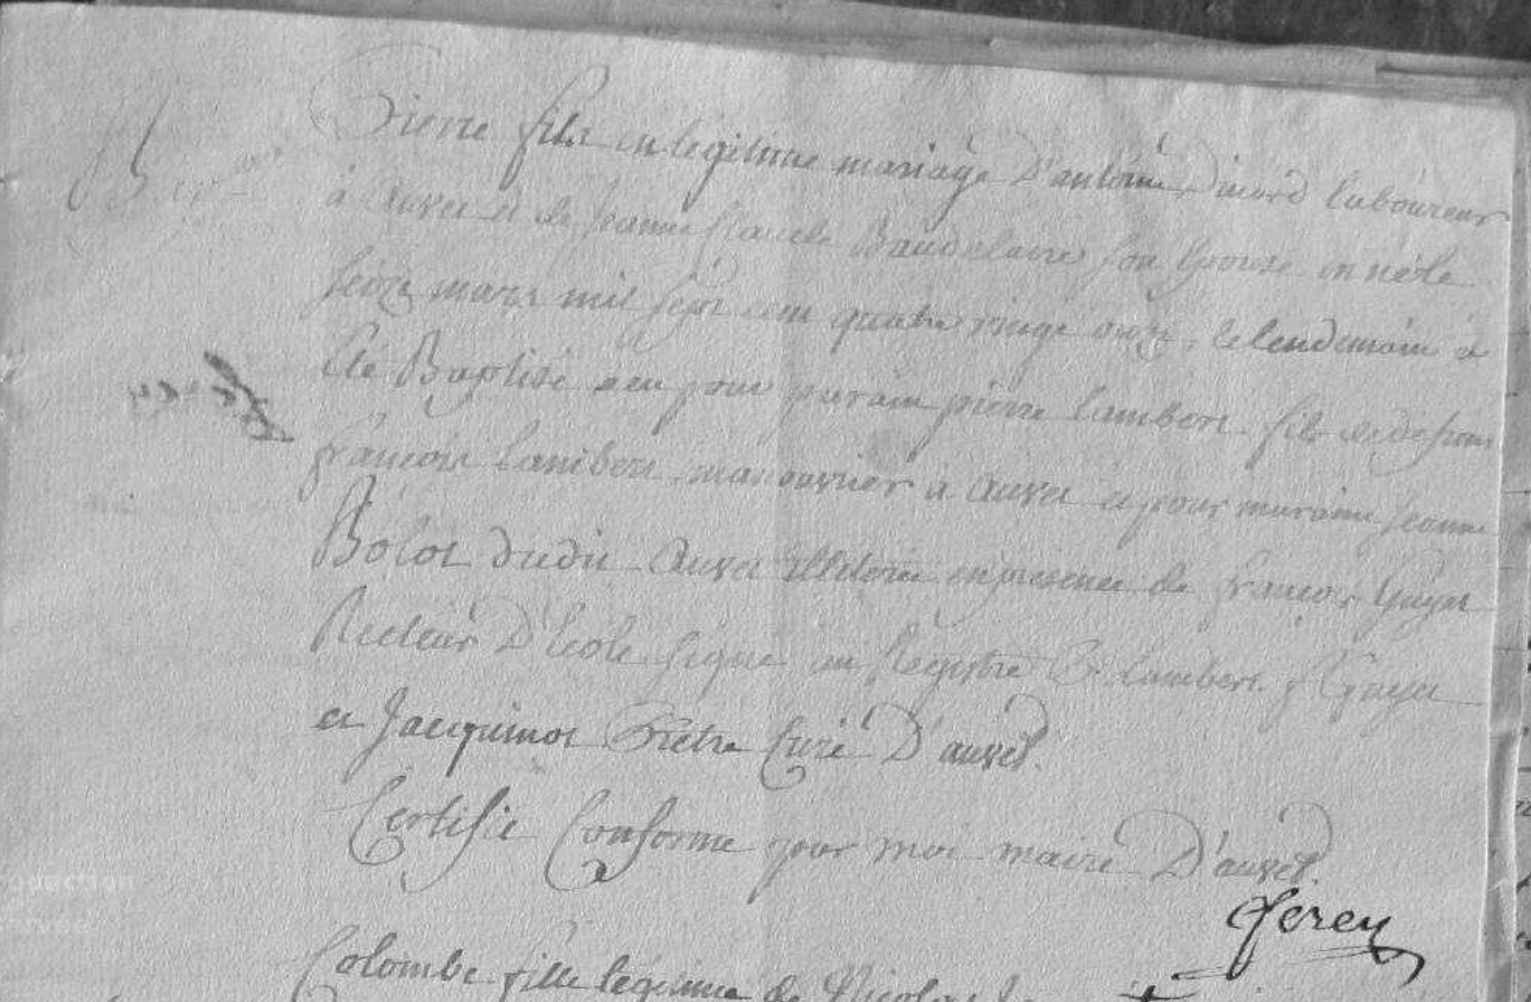 Pierre fils en legitime mariage D'antoine Dinard laboureur
à Auvet et de Jeanne Claude Baudelaire son Epouse en né le
seize mars mil sept cent quatre vingt onze, le lendemain a
Eté Baptisé a eu pour parain pierre Lambert fils de defunt
françois Lambert manouvrier à Auvet et pour maraine Jeanne
Bolot dudit Auvet illiterée en presence de françois Guyet
Recteur D'Ecole signé au Registre P. Lambert. f Guyet
et Jacquinot Prêtre Curé D'auvet.
Certifié Conforme pour moi maire D'auvet.
ferey
Colombe fille légitime de Nicolas